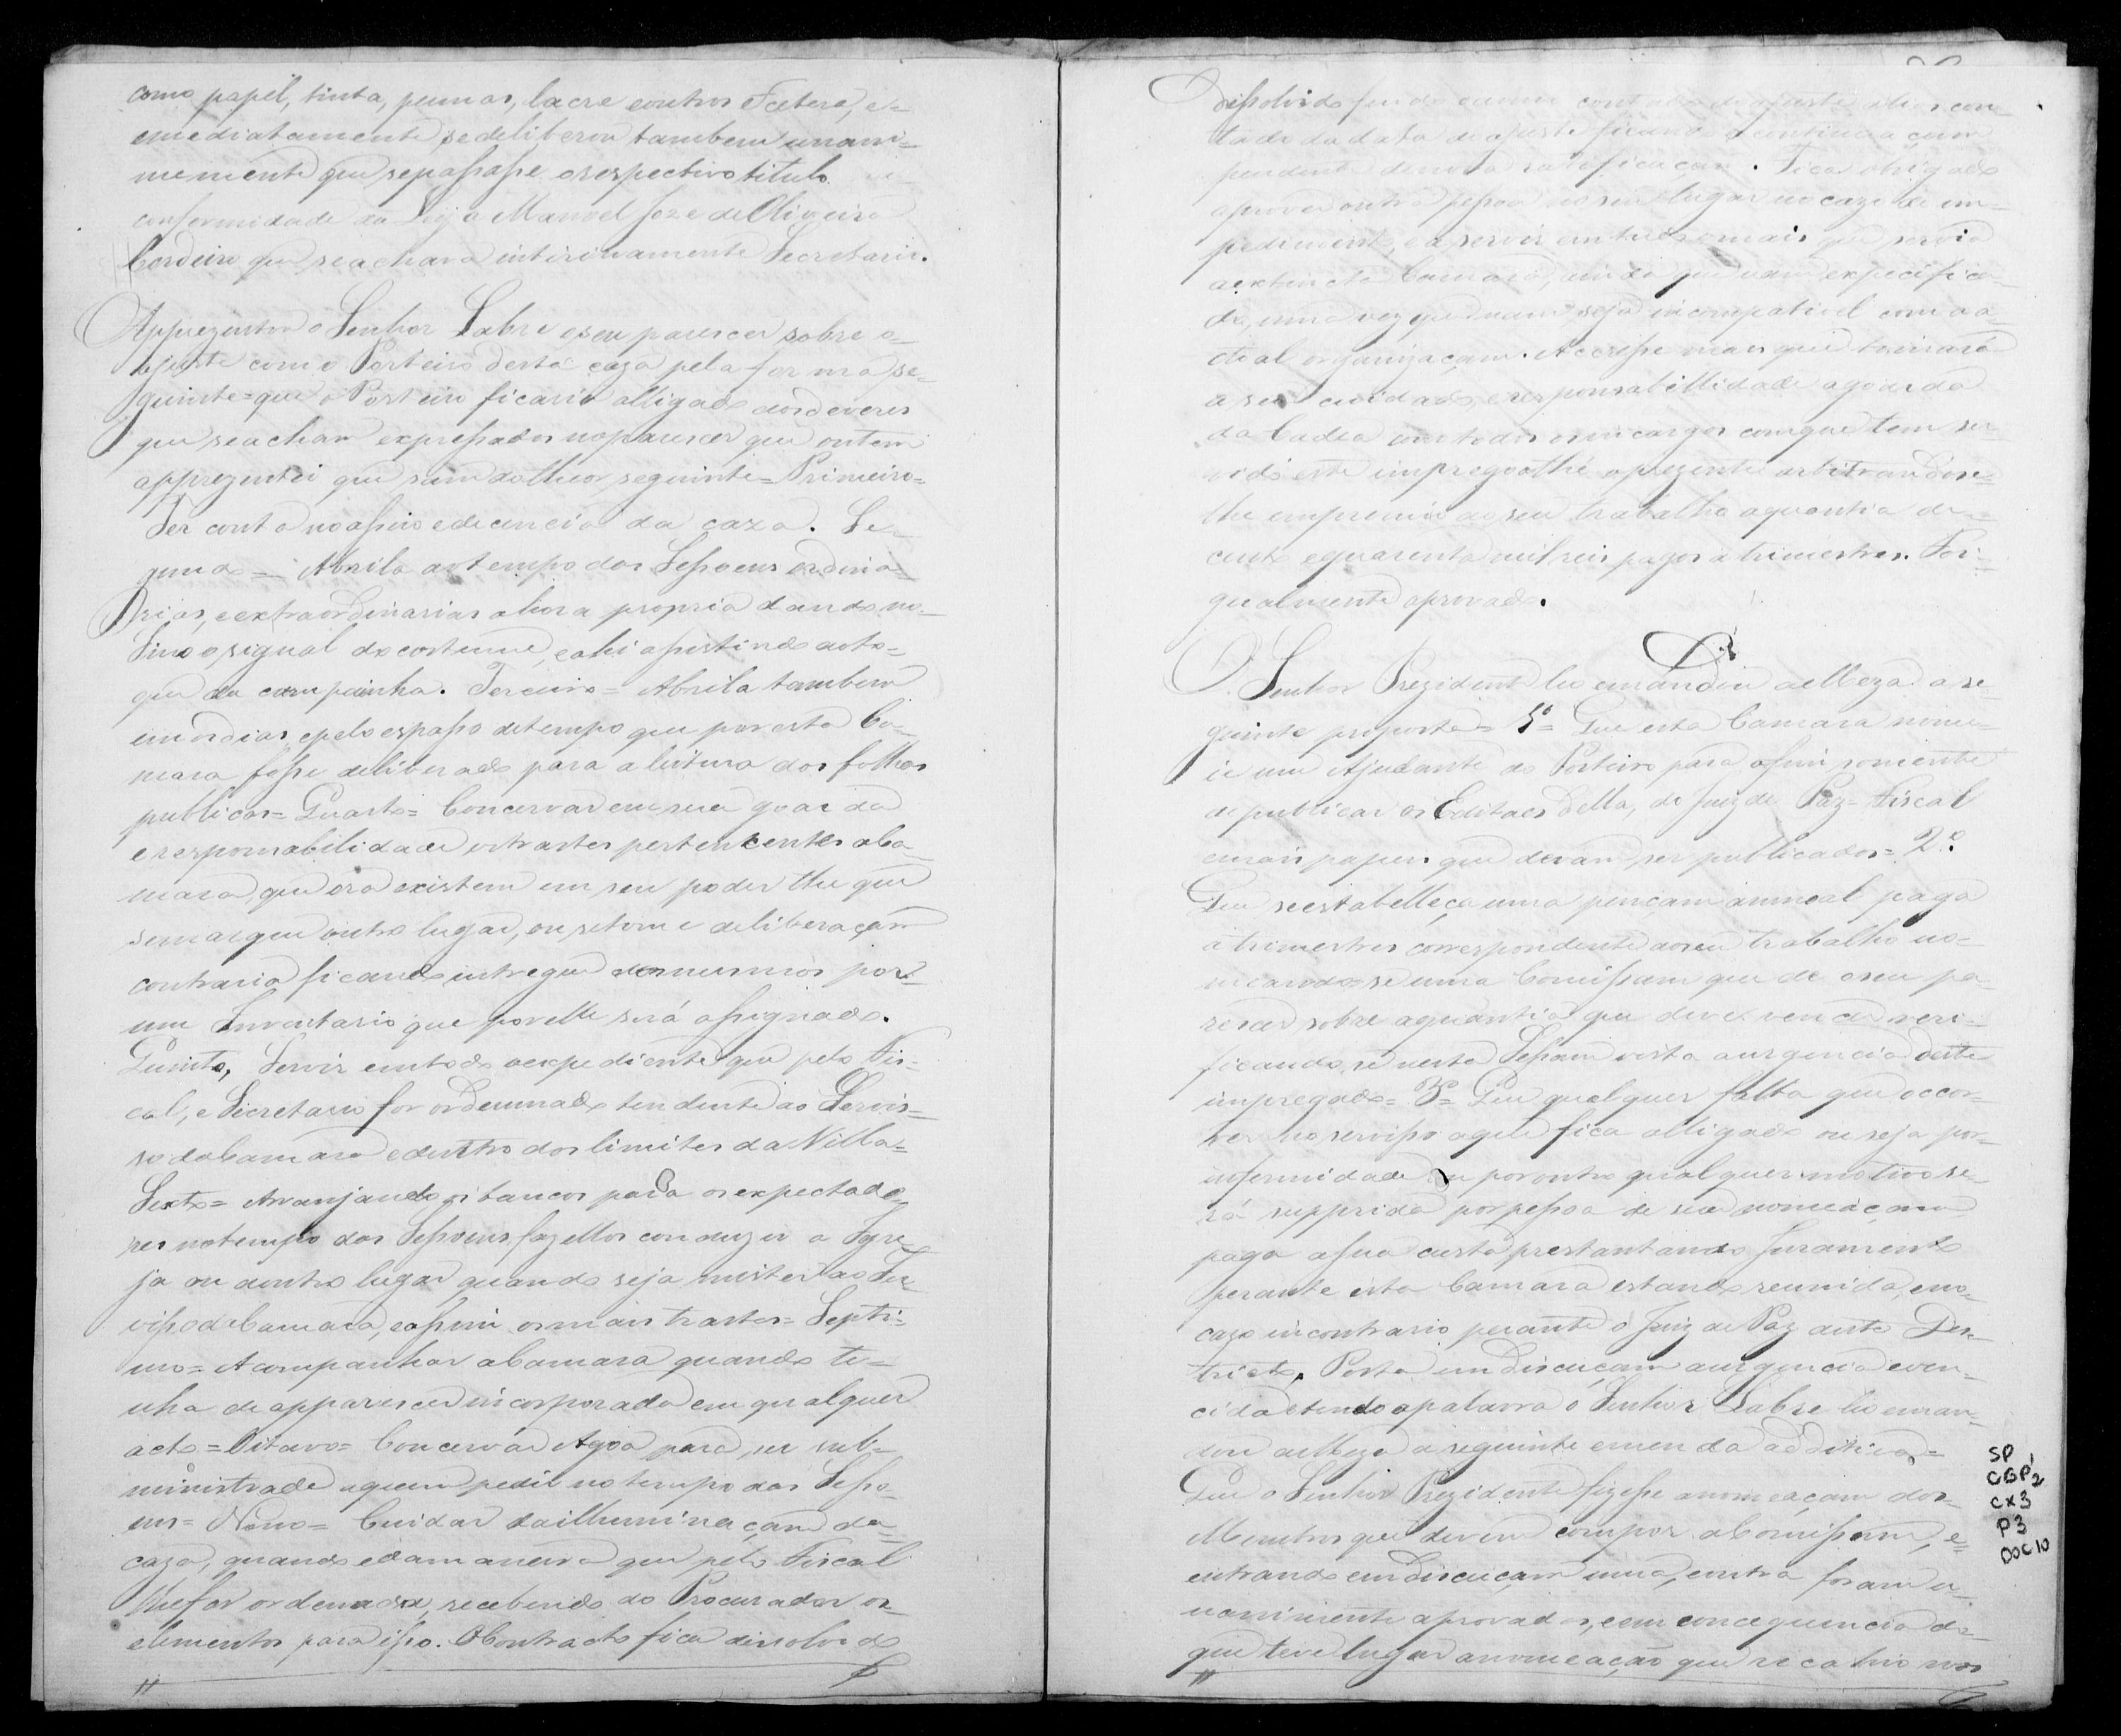 como papel, tinta, pennas, lacre eoutros etcetera, e=
emediatamente sedeliberou tambem unani=
memente que sepassasse orespectivo titulo
conformidade da Ley a Manoel Joze de Oliveira
Cordeiro que seachava intirinamente Secretario.
Apprezentou o Senhor Labre oseu parescer sobre o=
ajuste com o Porteiro desta caza pela forma se=
guinte=que o Porteiro ficario obligado aosdeveres
que seacham expressados noparescer que ontem
apprezentei que sam dotheor seguinte=Primeiro=
Ter conta noasseio edecencia da caza. Se=
gundo= Abrila aotempo das Sessoens ordina=
rias, eextraordinarias ahora propria dando no=
Sino osignal docostume, eahi assistindo aoto=
que da campainha. Terceiro= Abrila tambem
emosdias, epeloespasso detempo que poresta Ca=
mara fosse deliberado para aleitura dos folhas
publicas= Quarto= Concervar em sua guarda
eresponsabilidade ostrastes pertencentes aCa=
mara, que ora existem em seu poder thé que
semarque outro lugar, ou setome deliberaçam
contraria ficando entregue dosmesmos por=
um Inventario que porelle será assignado.
Quinto, Servir emtodo oexpediente que pelo Fis=
cal, e Secretario for ordennado tendente ao Servis=
so daCamara edentro dos limites da Villa=
Sexto= Arranjando os bancos para os expectado=
res notempo das Sessoens, fazellos conduzir a Igre=
ja ou aoutro lugar quando seja mister ao Ser=
visso daCamara, eassim osmais trastes= Septi=
mo= Acompanhar aCamara quando te=
nha de apparescer incorporada em qualquer
acto=Oitavo= Concervar Agoa para ser sub=
ministrada aquem pedir notempo das Sesso=
ens= Nono= Cuidar dailluminaçam da=
caza, quando edamaneira que pelo Fiscal
lhefor ordenada, recebendo do Procurador os=
elementos para isso. OContracto fica dissolvido
Dissolvido findo oanno contado doajuste alias con=
tado dadata doajuste ficando acontinuaçam
pendente denova ratificaçam. Fica obrigado
aprover outra pessoa noseu lugar nocazo de im=
pedimento, e a servir emtudo omais que servia
aextincta Camara, ainda que nam expecifica=
do, uma vez que nam seja incompativel com a a=
ctual organizaçam. Acresse mais que tomará
a seu cuidado, eresponsabillidade aguarda
da Cadea com todos osencargos comque tem ser=
vido este impregoathé oprezente arbitrandose=
lhe empremio do seu trabalho aquantia de=
cento equarenta mil reis pagos atrimestres. Foi=
gualmente aprovado.
O Senhor Prezidente leo emandou aMeza a se=
guinte proposta= 1º= Que esta Camara nome=
ie um Ajudante do Porteiro para ofim somente
de publicar os Editaes della, do Juiz de Paz= Fiscal
emais papeis que devam ser publicados= 2º
Que seestabelleça uma pençam annoal paga
atrimestres correspondente aoseu trabalho no=
meando-se uma Comissam que dê oseu pa=
rescer sobre aquantia que deve vencer veri=
ficando se nesta Sessam vista aurgencia deste
impregado= 3º= Que qualquer falta que occor=
rer no servisso aque fica obligado ou seja por=
infermidade ou poroutro qualquer motivo se=
rá supprida porpessoa de sua nomeaçam
paga asua custa prestantando Juramento
perante esta Camara estando reunida, eno=
cazo incontrario perante o Juiz de Paz deste Des=
tricto. Posta emdiscuçam aurgencia even=
cida etendo apalavra o Senhor Labre leo eman=
dou aMeza a seguinte emenda additiva=
Que o Senhor Prezidente fizesse anomeaçam dos=
Membros que devem compor aComissam, e=
entrando emdiscuçam uma, eoutra foram u=
nanimente aprovadas, eem concequencia do=
que teve lugar anomeaçaõ que recahio nos
SP
CGP2
CX3
P3
DOC10